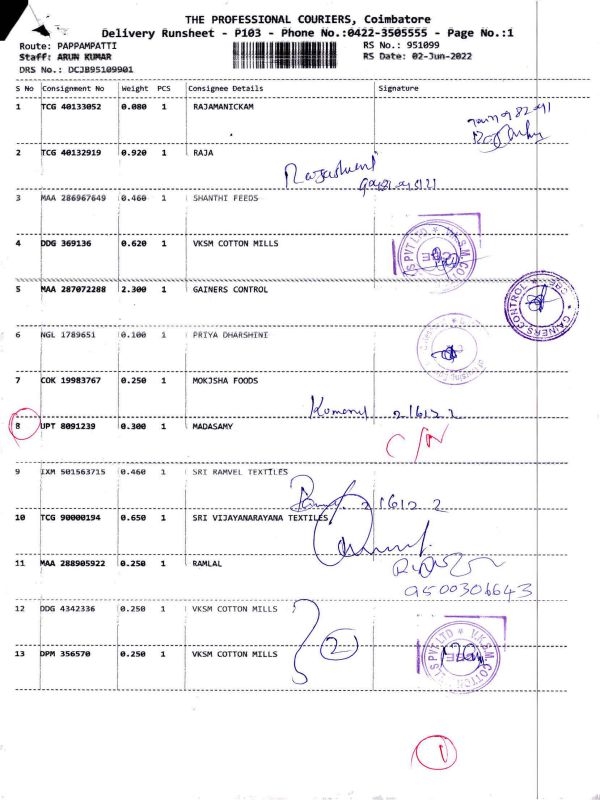 THE PROFESSIONAL COURIERS, Coimbatore
Delivery Runsheet - P103 - Phone No.:0422-3505555 - Page No.:1
Route: PAPPAMPATTI
RS No.: 951099
Staff: ARUN KUMAR
RS Date: 02-Jun-2022
DRS No.: DCJB95109901
S No Consignment No Weight PCS Consignee Details Signature
1 TCG 40133052 0.080 1 RAJAMANICKAM
2 TCG 40132919 0.920 1 RAJA
3 MAA 286967649 0.460 1 SHANTHI FEEDS
4 DDG 369136 0.620 1 VKSM COTTON MILLS
5 MAA 287072288 2.300 1 GAINERS CONTROL
GAINERS CONTROL
6 NGL 1789651 0.100 1 PRIYA DHARSHINI
7 COK 19983767 0.250 1 MOKJSHA FOODS
8 UPT 8091239 0.300 1 MADASAMY
C/N
9 IXM 501563715 0.460 1 SRI RAMVEL TEXTILES
10 TCG 90000194 0.650 1 SRI VIJAYANARAYANA TEXTILES
11 MAA 288905922 0.250 1 RAMLAL
9500306643
12 DDG 4342336 0.250 1 VKSM COTTON MILLS
2
13 DPM 356570 0.250 1 VKSM COTTON MILLS
1